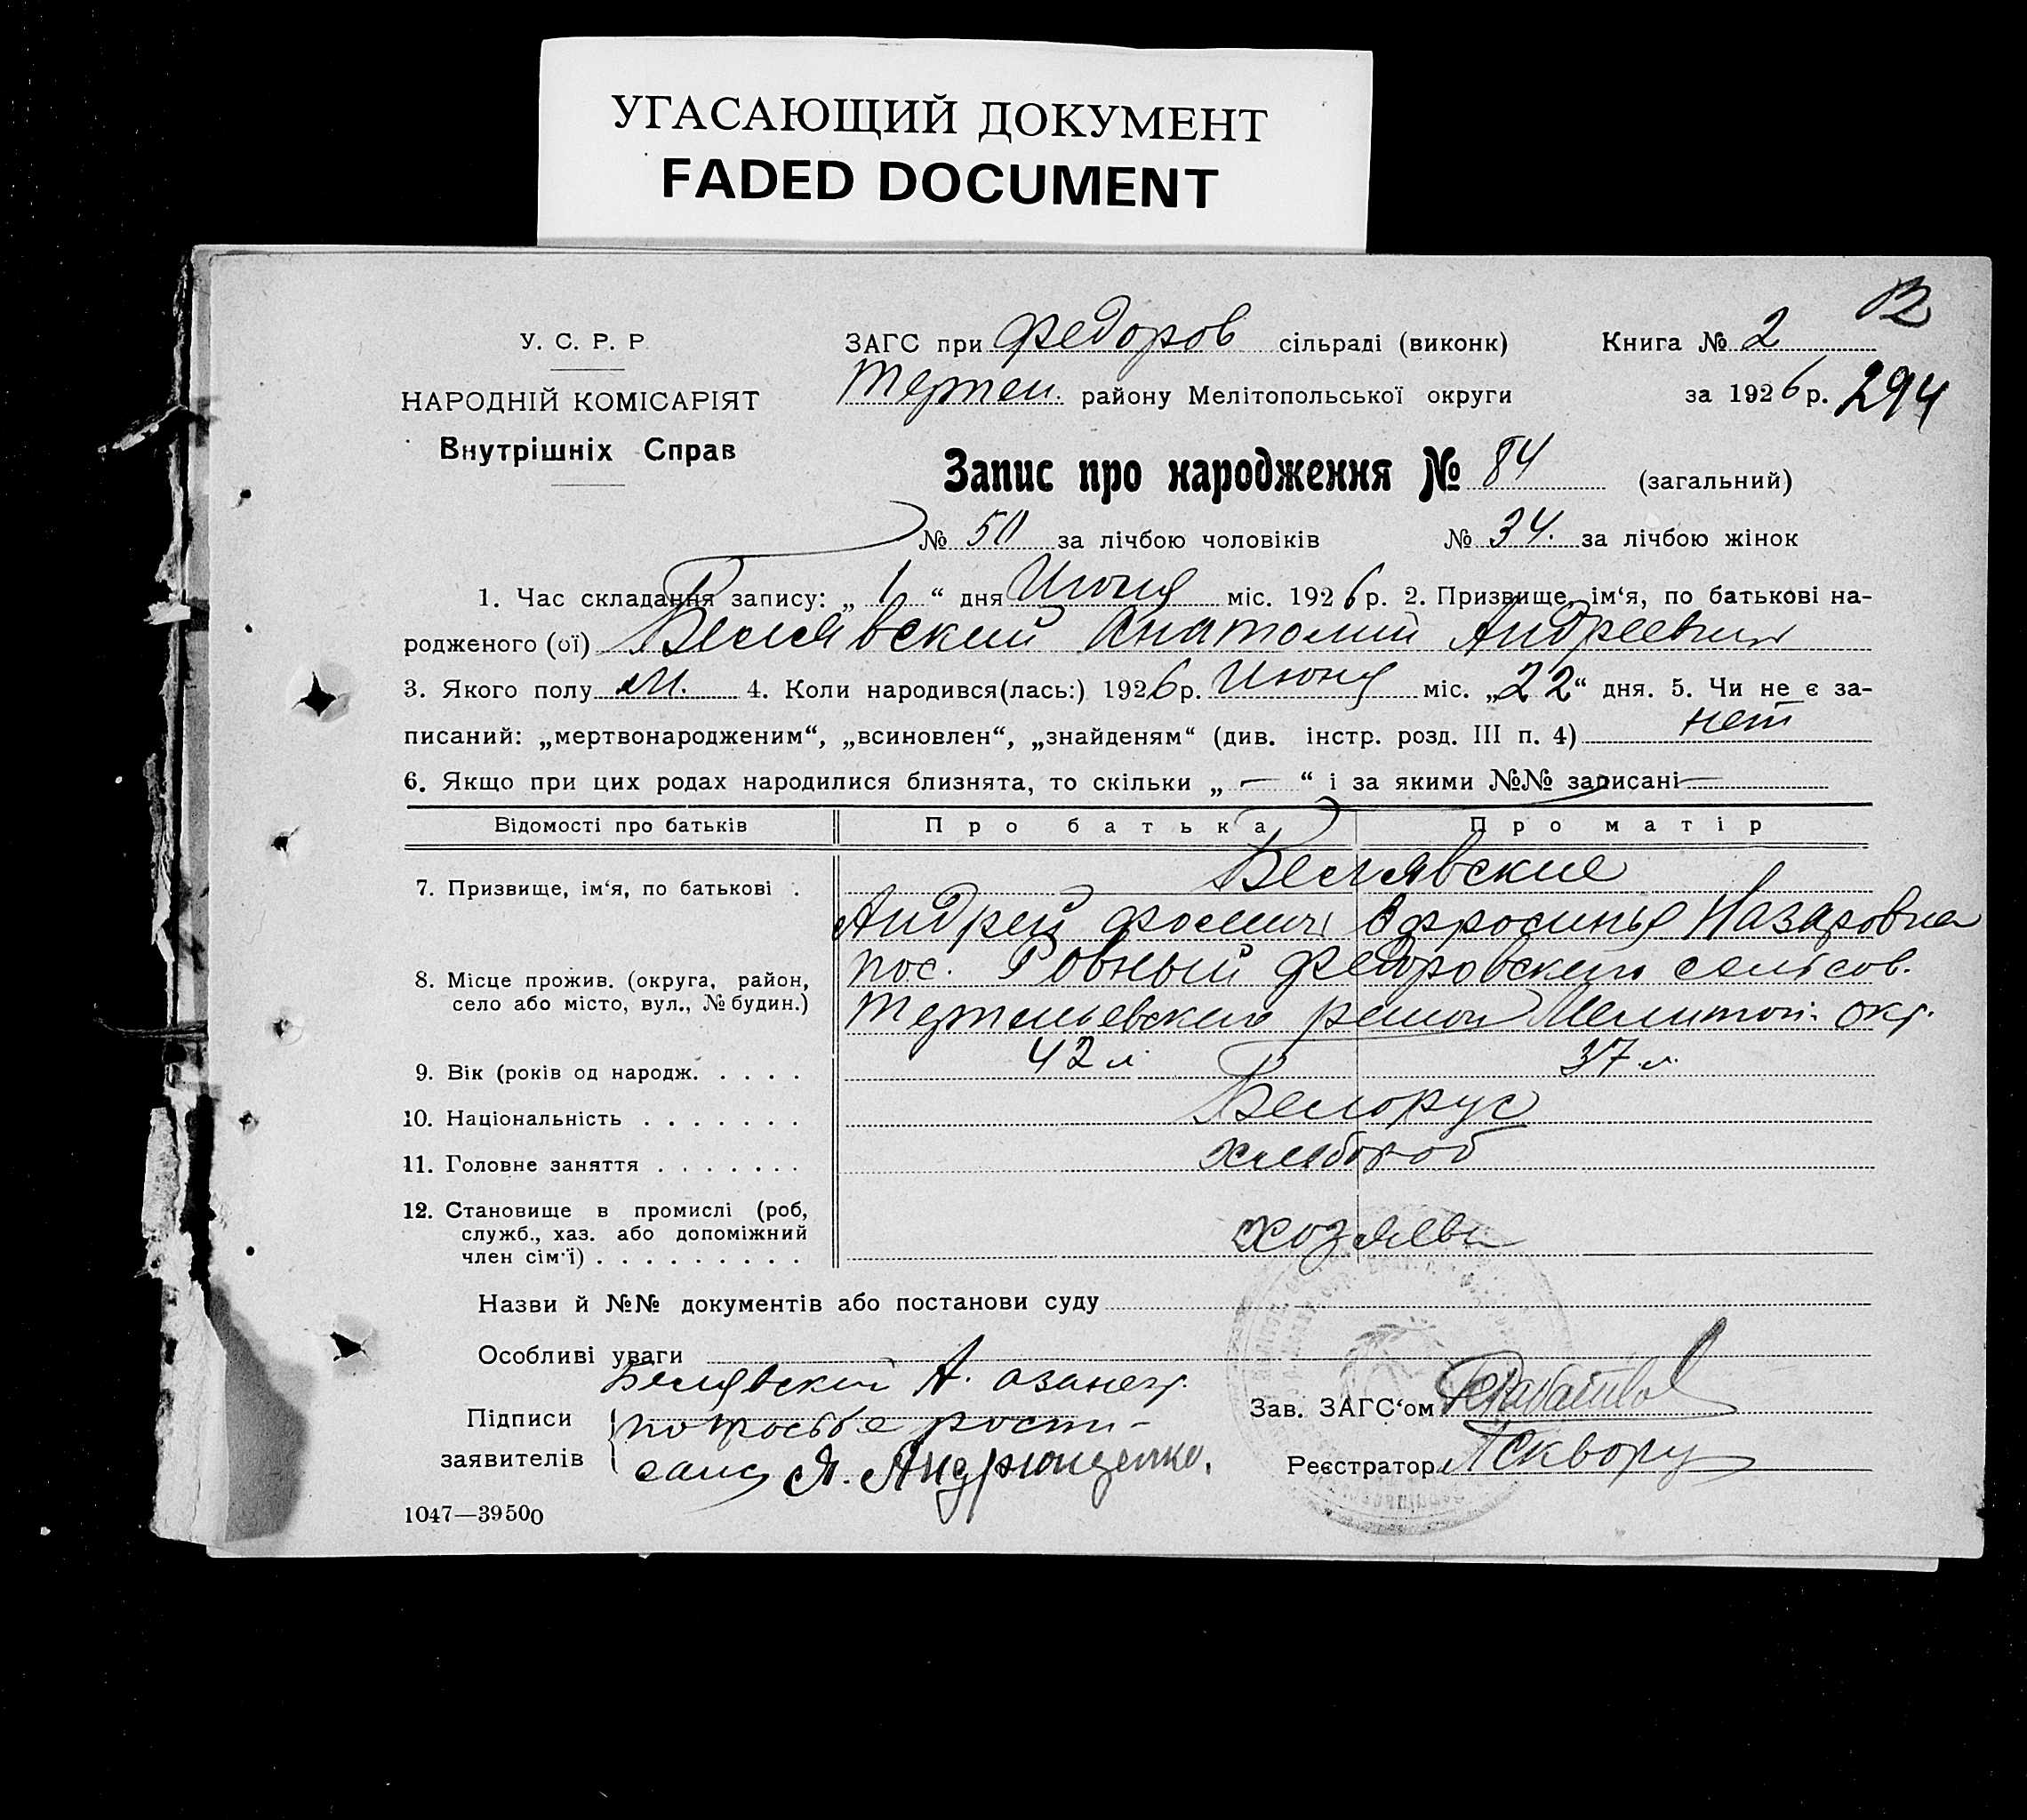 УГАСАЮЩИЙ ДОКУМЕНТ
FADED DOCUMENT
У. С. Р. Р
НАРОДНІЙ КОМІСАРІЯТ
Внутрішніх Справ
ЗАГС при Федоров сільраді (виконк)
Терпен. району Мелітопольської округи
Книга № 2
за 1926 р. 294
Запис про народження № 84 (загальний)
№ 50 за лічбою чоловіків № 34. за лічбою жінок
1. Час складання запису: „ 1 “ дня Июня міс. 1926 р. 2. Призвище, ім‘я, по батькові на-
родженого (ої) Белявский Анатолий Андреевич
3. Якого полу М. 4. Коли народився(лась:) 1926 р. Июня міс. „22“ дня. 5. Чи не є за-
писаний: „мертвонародженим“, „всиновлен“, „знайденям“ (див. інстр. розд. III п. 4) нет
6. Якщо при цих родах народилися близнята, то скільки „ — “ і за якими №№ записані —
Відомості про батьків Про батька Про матір
7. Призвище, ім‘я, по батькові .
Белявские
Андрей Фомич Ефросинья Назаровна
8. Місце прожив. (округа, район,
село або місто, вул., № будин.)
пос. Ровный Федоровского сельсов.
района Мелитоп. окр.
9. Вік (років од народж. . . . . 42 л. 37 л.
10. Національність . . . . . . . Белорус
11. Головне заняття . . . . . . . хлебороб
12. Становище в промислі (роб,
служб., хаз. або допоміжний
член сім‘ї) . . . . . . . . . хозяева
Назви й №№ документів або постанови суду
Особливі уваги
Підписи
заявителів
Белявский А. а за негр.
по просьбе распи-
сался Я. Андрющенко.
Зав. ЗАГС‘ом
Реєстратор
1047—39500